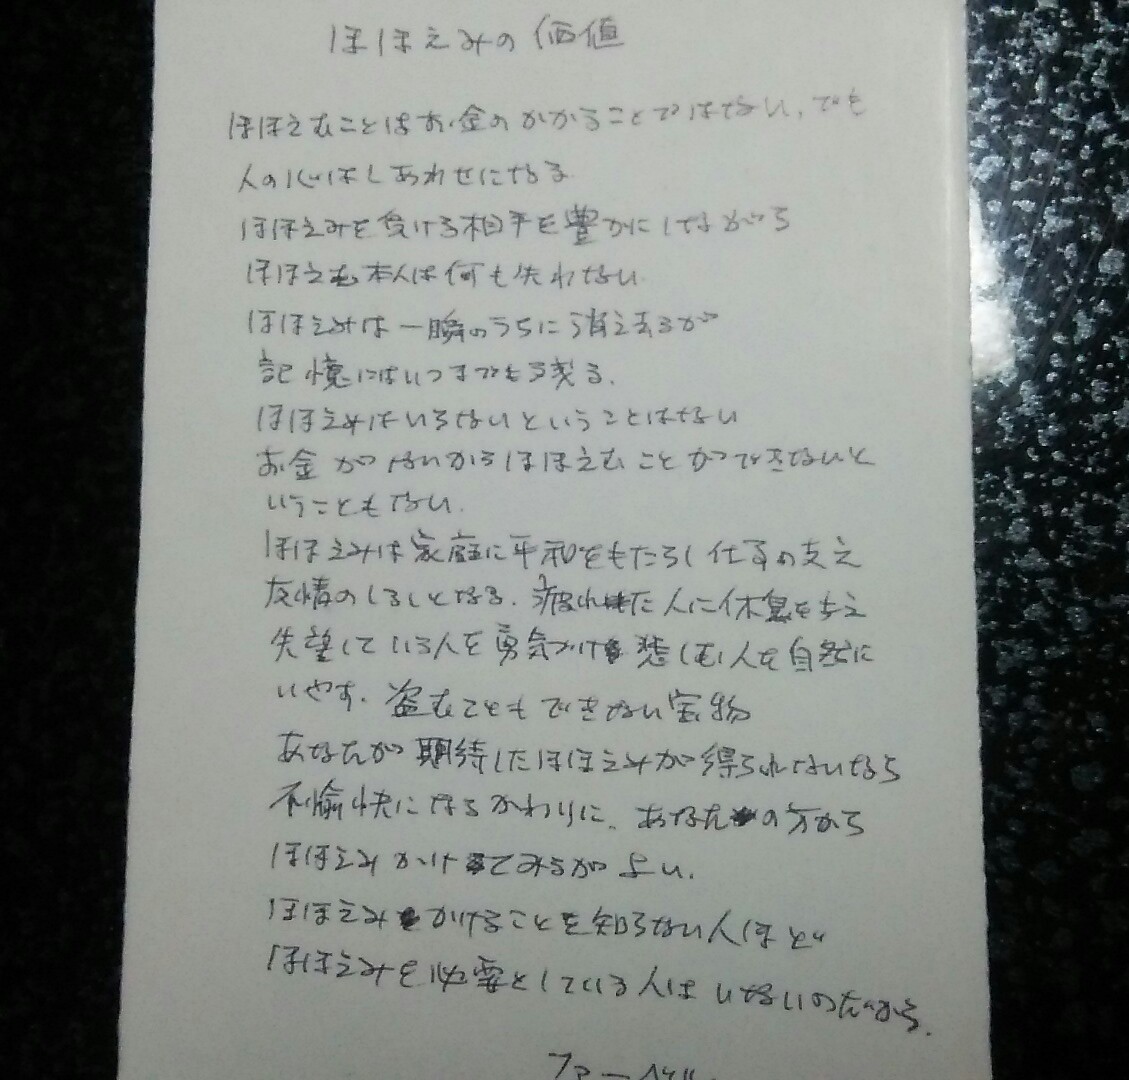 ほほえみの価値
ほほえむことはお金のかかることではない、でも
人の心はしあわせになる
ほほえみを受ける相手を豊かにしながら
ほほえむ本人は何も失わない
ほほえみは一瞬のうちに消え去るが
記憶にはいつまでも残る.
ほほえみはいらないということはない
お金がないからほほえむことができないと
いうこともない.
ほほえみは家庭に平和をもたらし仕事の支え
友情のしるしとなる. 疲れた人に休息を与え
失望している人を勇気づけ 悲しむ人を自然に
いやす. 盗むこともできない宝物
あなたが期待したほほえみが得られないなら
不愉快になるかわりに. あなたの方から
ほほえみかけてみるがよい.
ほほえみかけることを知らない人ほど
ほほえみを必要としている人はいないのだから.